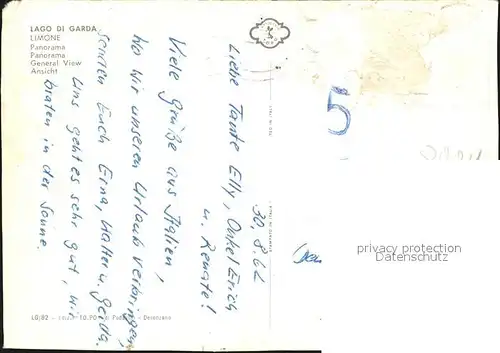 LAGO DI GARDA
LIMONE
Panorama
Panorama
General View
Ansicht
30.8.62
Liebe Tante Elly, Onkel Erich
u. Renate!
Viele Grüße aus Italien,
wo wir unseren Urlaub verbringen,
senden Euch Erna, Walter u. Gerda.
Uns geht es sehr gut, wir
braten in der Sonne.
5
privacy protection
Datenschutz
LG/82
Desenzano